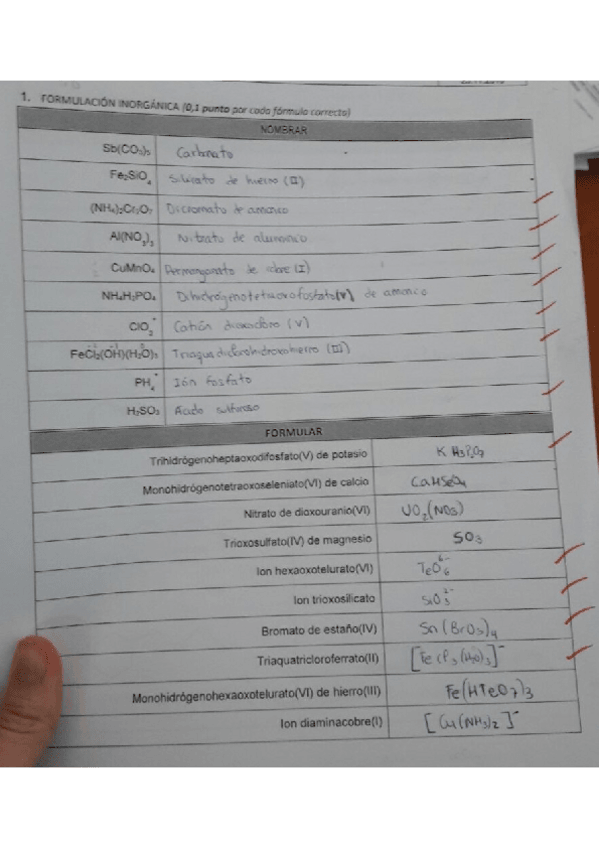 1. FORMULACIÓN INORGÁNICA (0,1 punto por cada fórmula correcta)
NOMBRAR
Sb(CO₃)₅ Carbonato
Fe₂SiO₄ Silicato de hierro (II)
(NH₄)₂Cr₂O₇ Dicromato de amonico
Al(NO₃)₃ Nitrato de aluminico
CuMnO₄ Permanganato de cobre (I)
NH₄H₂PO₄ Dihidrógenotetraoxofosfato(V) de amonico
ClO₂⁺ Catión dioxocloro (V)
FeCl₂(OH)(H₂O)₃ Triaquadiclorohidroxohierro (III)
PH₄⁺ Ión fosfato
H₂SO₃ Ácido sulfuroso
FORMULAR
Trihidrógenoheptaoxodifosfato(V) de potasio K H₃P₂O₇
Monohidrógenotetraoxoseleniato(VI) de calcio CaHSeO₄
Nitrato de dioxouranio(VI) UO₂(NO₃)
Trioxosulfato(IV) de magnesio SO₃
Ion hexaoxotelurato(VI) TeO₆⁶⁻
Ion trioxosilicato SiO₃²⁻
Bromato de estaño(IV) Sn(BrO₃)₄
Triaquatricloroferrato(II) [FeCl₃(H₂O)₃]⁻
Monohidrógenohexaoxotelurato(VI) de hierro(III) Fe(HTeO₇)₃
Ion diaminacobre(I) [Cu(NH₃)₂]⁻